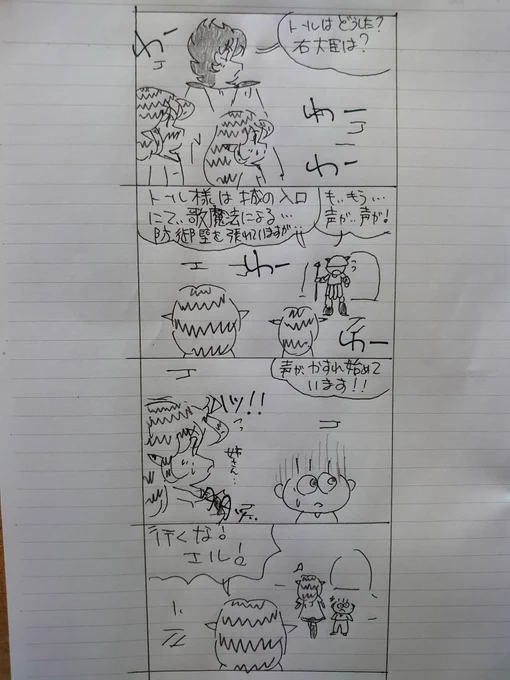 トールはどうした?
右大臣は?
わー
わー
わー
も、もう…
声が…声が!
トール様は城の入口
にて…歌魔法による…
防御壁を張れていますが…
わー
わー
声が、かすれ始めて
います!!
ハッ!!
姉さん…
行くな!
エル!